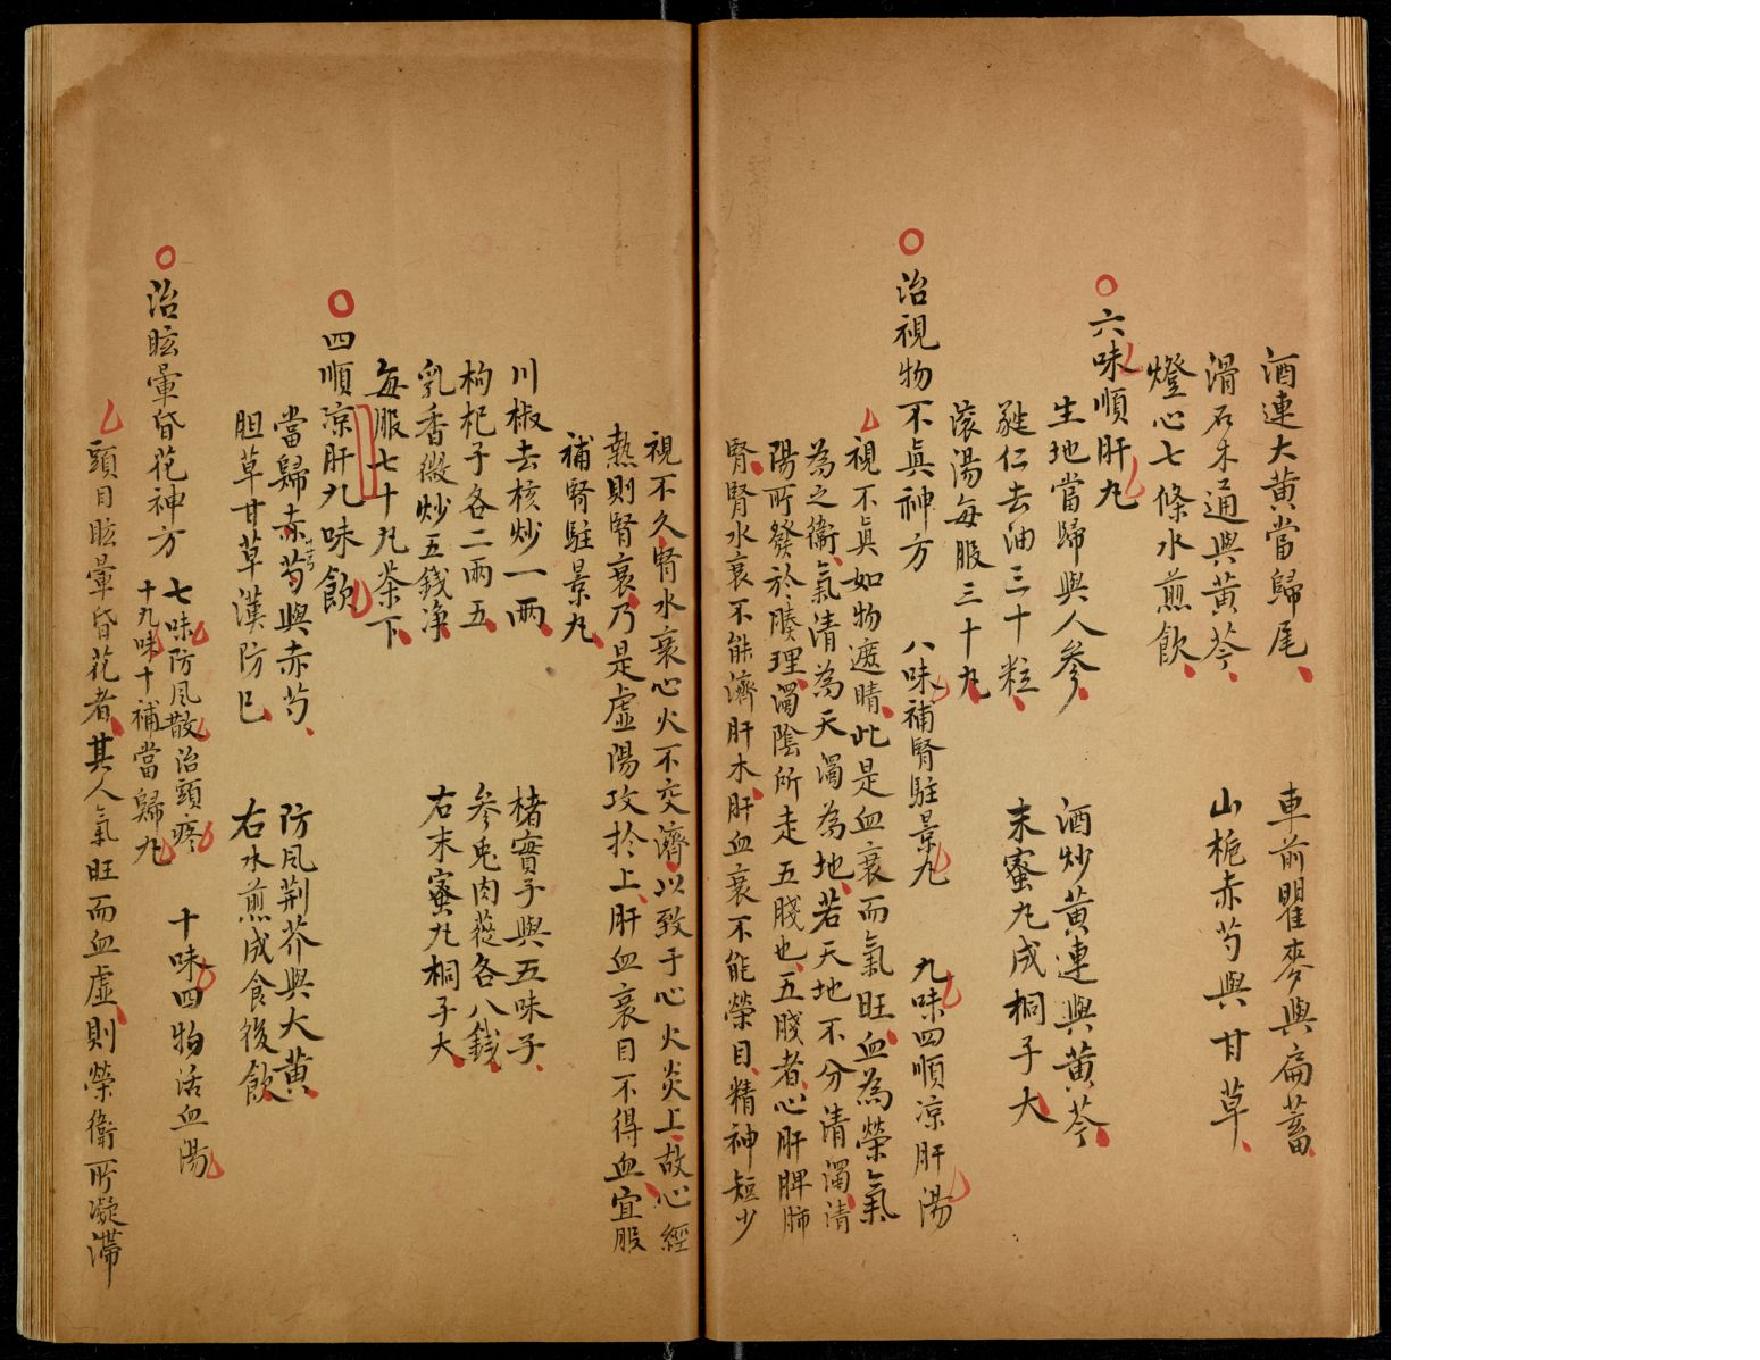 酒連大黃當歸尾 車前瞿麥與扁蓄
滑石木通與黃芩 山梔赤芍與甘草
燈心七條水煎飲
六味順肝丸
生地當歸與人參 酒炒黃連與黃芩
蕤仁去油三十粒 末蜜丸成桐子大
滾湯每服三十丸
治視物不眞神方 八味補腎駐景丸 九味四順凉肝湯
視不眞如物遮睛此是血衰而氣旺血為榮氣
為之衞氣清為天濁為地若天地不分清濁清
陽所發於腠理濁陰所走五賊也五賊者心肝脾肺
腎腎水衰不能濟肝木肝血衰不能榮目精神短少
視不久腎水衰心火不交濟以致于心火炎上故心經
熱則腎衰乃是虛陽攻於上肝血衰目不得血宜服
補腎駐景丸
川椒去核炒一兩 楮實子與五味子
枸杞子各二兩五 參兎肉蓯各八錢
乳香微炒五錢净 右末蜜丸桐子大
每服七十丸茶下
四順凉肝九味飲
當歸赤芍與赤芍 防風荆芥與大黃
胆草甘草漢防巳 右水煎成食後飲
治眩暈昏花神方 七味防風散治頭疼 十味四物活血湯
十九味十補當歸丸
頭目眩暈昏花者其人氣旺而血虛則榮衞所凝滯